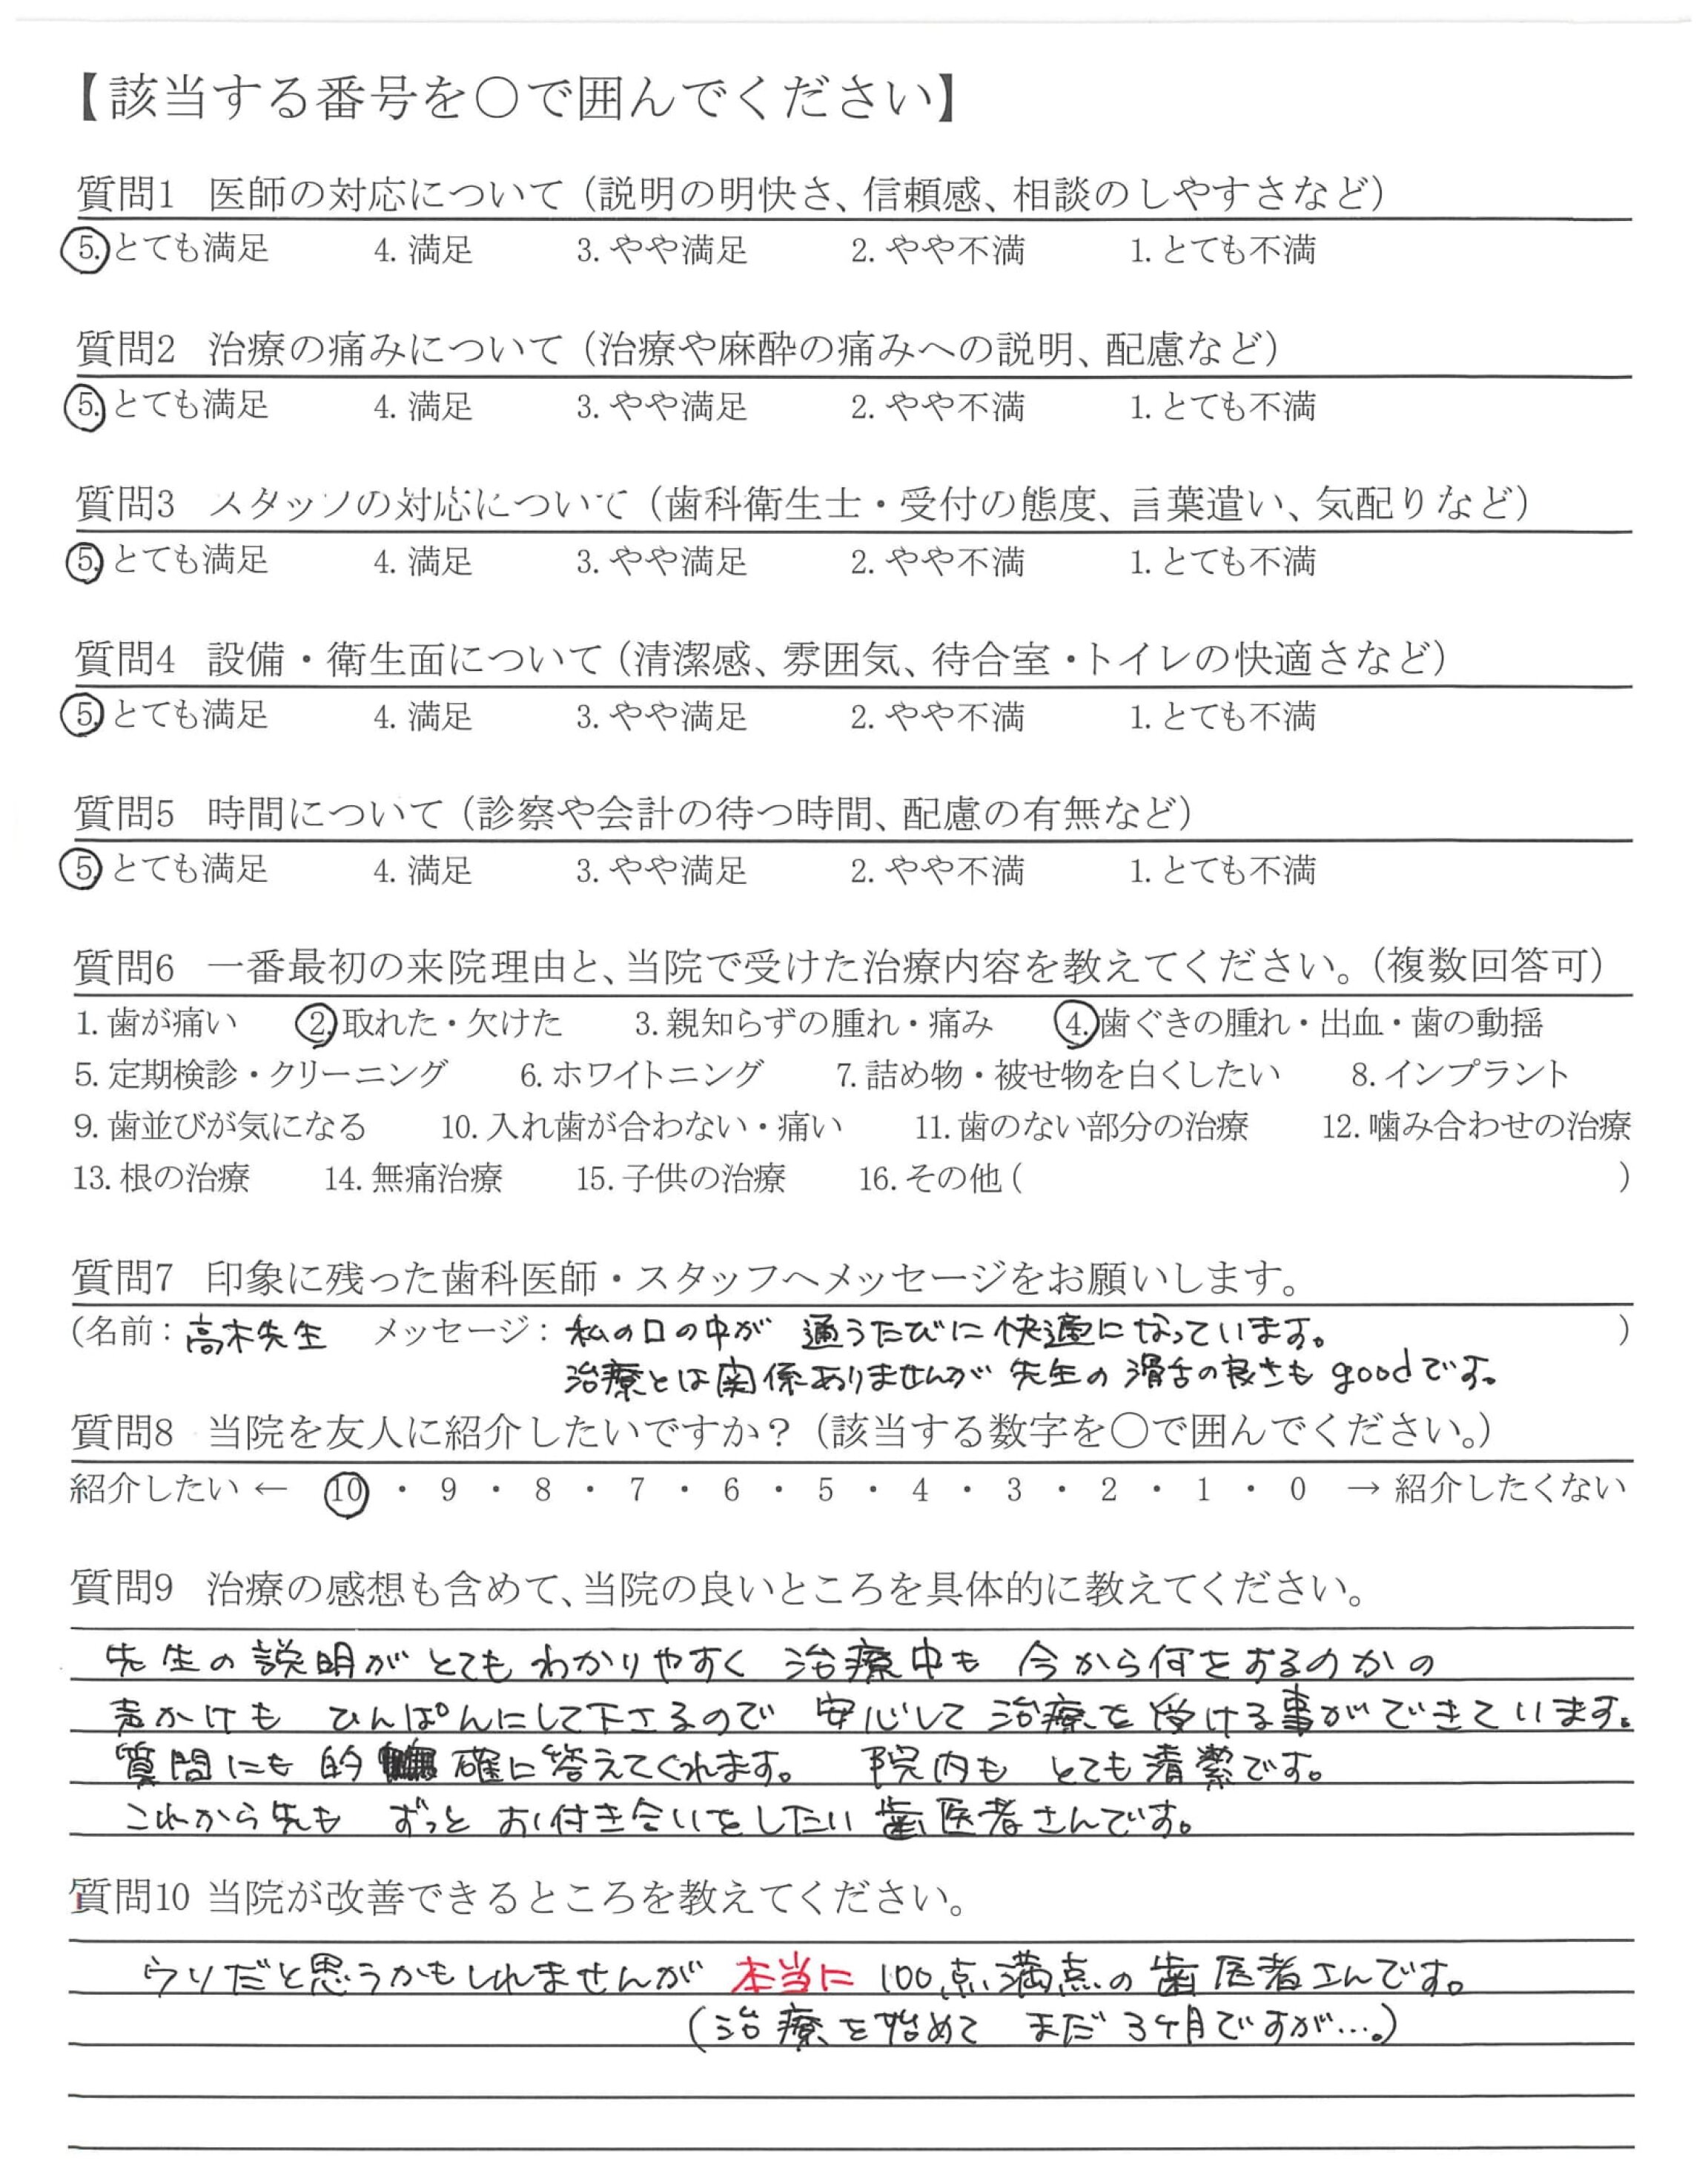 【該当する番号を〇で囲んでください】
質問1 医師の対応について（説明の明快さ、信頼感、相談のしやすさなど）
5. とても満足 4. 満足 3. やや満足 2. やや不満 1. とても不満
質問2 治療の痛みについて（治療や麻酔の痛みへの説明、配慮など）
5. とても満足 4. 満足 3. やや満足 2. やや不満 1. とても不満
質問3 スタッフの対応について（歯科衛生士・受付の態度、言葉遣い、気配りなど）
5. とても満足 4. 満足 3. やや満足 2. やや不満 1. とても不満
質問4 設備・衛生面について（清潔感、雰囲気、待合室・トイレの快適さなど）
5. とても満足 4. 満足 3. やや満足 2. やや不満 1. とても不満
質問5 時間について（診察や会計の待つ時間、配慮の有無など）
5. とても満足 4. 満足 3. やや満足 2. やや不満 1. とても不満
質問6 一番最初の来院理由と、当院で受けた治療内容を教えてください。（複数回答可）
1. 歯が痛い 2. 取れた・欠けた 3. 親知らずの腫れ・痛み 4. 歯ぐきの腫れ・出血・歯の動揺
5. 定期検診・クリーニング 6. ホワイトニング 7. 詰め物・被せ物を白くしたい 8. インプラント
9. 歯並びが気になる 10. 入れ歯が合わない・痛い 11. 歯のない部分の治療 12. 噛み合わせの治療
13. 根の治療 14. 無痛治療 15. 子供の治療 16. その他（ ）
質問7 印象に残った歯科医師・スタッフへメッセージをお願いします。
（名前：高木先生 メッセージ：私の口の中が 通うたびに快適になっています。 ）
治療とは関係ありませんが 先生の滑舌の良さもgoodです。
質問8 当院を友人に紹介したいですか？（該当する数字を〇で囲んでください。）
紹介したい ← 10 ・ 9 ・ 8 ・ 7 ・ 6 ・ 5 ・ 4 ・ 3 ・ 2 ・ 1 ・ 0 → 紹介したくない
質問9 治療の感想も含めて、当院の良いところを具体的に教えてください。
先生の説明がとてもわかりやすく 治療中も 今から何をするのかの
声かけも ひんぱんにして下さるので 安心して治療を受ける事ができています。
質問にも的確に答えてくれます。 院内も とても清潔です。
これから先も ずっと お付き合いをしたい歯医者さんです。
質問10 当院が改善できるところを教えてください。
ウソだと思うかもしれませんが 本当に 100点満点の歯医者さんです。
（治療を始めて まだ3ヶ月ですが…。）